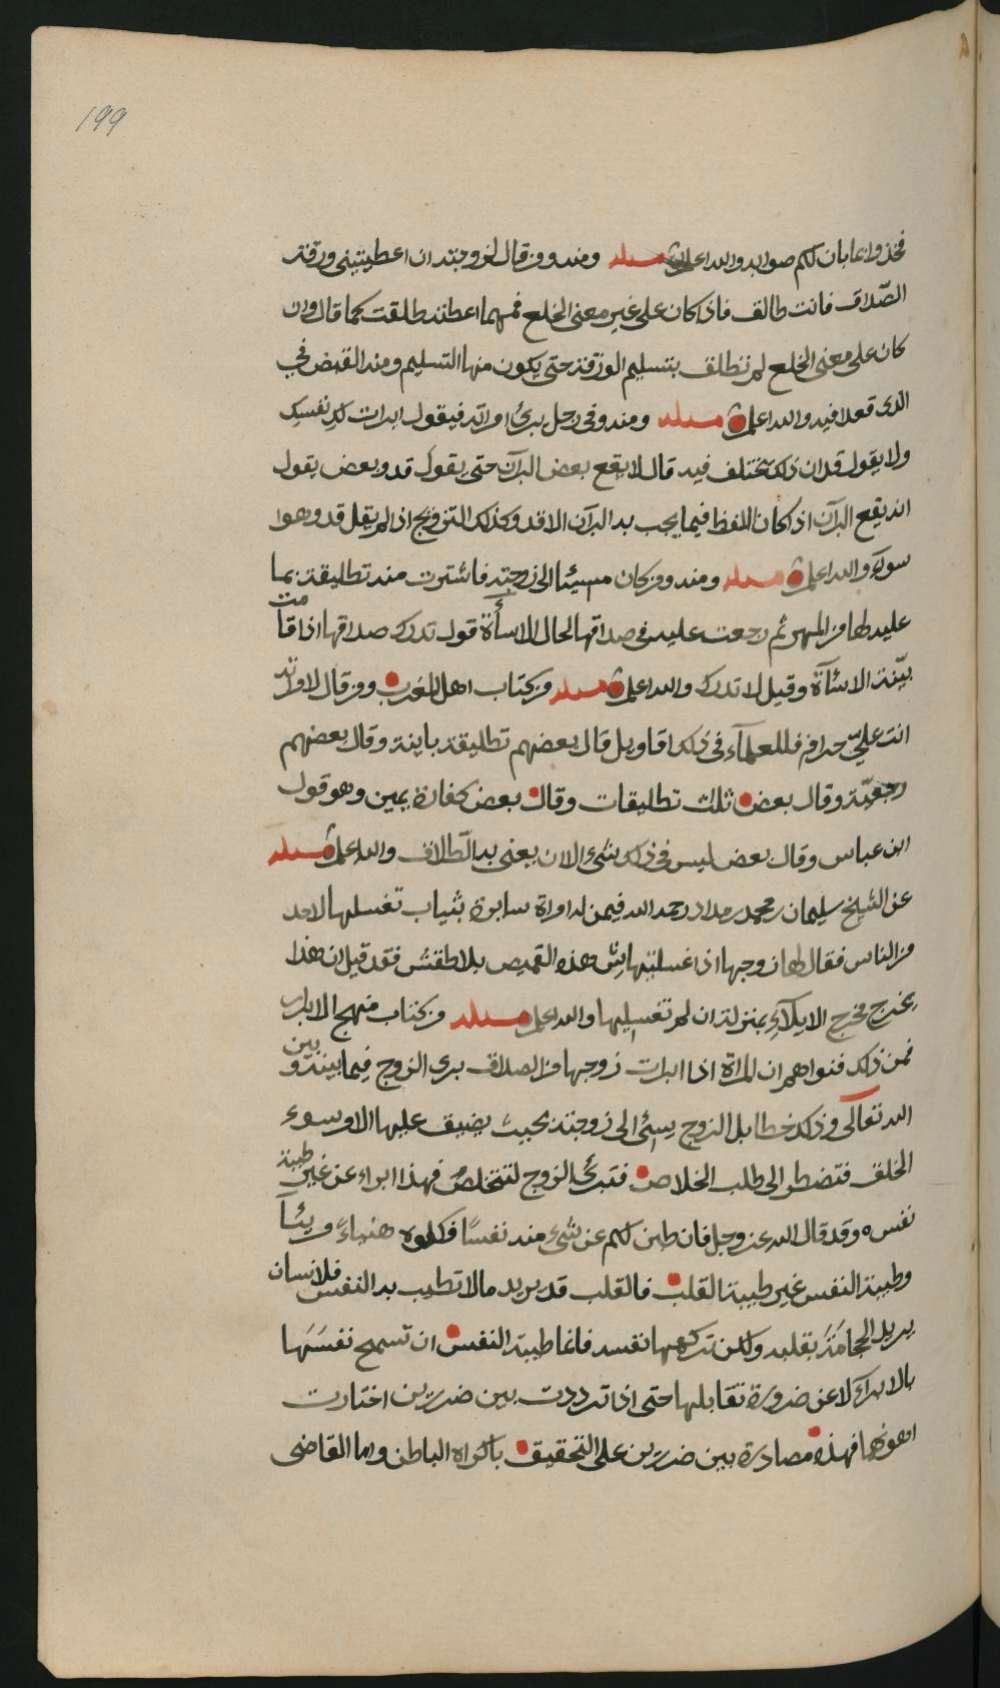 199
فخذوا بما بان لكم صوابه والله اعلم مسئلة ومنه ومن قال لزوجته ان اعطيتيني ورقة
الصّداق فانت طالق فاذا كان على غير معنى الخلع فمهما اعطته طلقت كما قال وان
كان على معنى الخلع لم تطلق بتسليم الورقة حتى يكون منها التسليم ومنه القبض في
الذي قعدا فيه والله اعلم مسئلة ومنه وفي رجل يبرئ امراته فيقول ابرات لك نفسك
ولا يقول قد ان ذلك مختلف فيه قال لا يقع بعض البرآن حتى يقول قد وبعض يقول
انه يقع البرآن اذا كان اللفظ فيما يجب به البرآن الا قد وكذلك التزويج اذا لم يقل قد وهوا
سوآء والله اعلم مسئلة ومنه ومن كان مسيئا الى زوجته فاشترت منه تطليقة بما
عليه لها من المهر ثم رجعت عليه في صداقها لحال الاسأة قول تدرك صداقها اذا قامت
بيّنة الاسآة وقيل لا تدرك والله اعلم مسئلة من كتاب اهل المغرب ومن قال لامراته
انت عليّ حرام فللعلمآء في ذلك اقاويل قال بعضهم تطليقة باينة وقال بعضهم
رجعيّة وقال بعض ثلث تطليقات وقال بعض كفارة يمين وهو قول
ابن عباس وقال بعض ليس في ذلك شيء الا ان يعني به الّطلاق والله اعلم مسئلة
عن الشيخ سليمان بن محمد بن مداد رحمه الله فيمن له امراة سابرة بثياب تغسلها لاحد
من الناس فقال لها زوجها اذا غسلتيها هذه القميص بلا طقش فقد قيل ان هذا
يخرج مخرج الايلآء بمنزلة ان لم تغسليها والله اعلم مسئلة من كتاب منهج الابرار
فمن ذلك فتواهم ان المراة اذا ابرات زوجها من الصداق برى الزوج فيما بينه وبين
الله تعالى وذلك خطا بل الزوج يسئ الى زوجته بحيث يضيق عليها الامر بسوء
الخلق فتضطر الى طلب الخلاص فتبرئ الزوج لتتخلص فهذا ابراء عن غير طيبة
نفس وقد قال الله عز وجل فان طبن لكم عن شيء منه نفسًا فكلوه هنيءاً مريئاً
وطيبة النفس غير طيبة القلب فالقلب قد يريد ما لا تطيب به النفس فلانسان
يريد الحجامة بقلبه ولكن تكرهها نفسه فانما طيبة النفس ان تسمح نفسها
بالابراء لا عن ضرورة تقابلها حتى اذا ترددت بين ضررين اختارت
اهونهما فهذه مصادرة بين ضررين على التحقيق باكراه الباطن واما القاضي